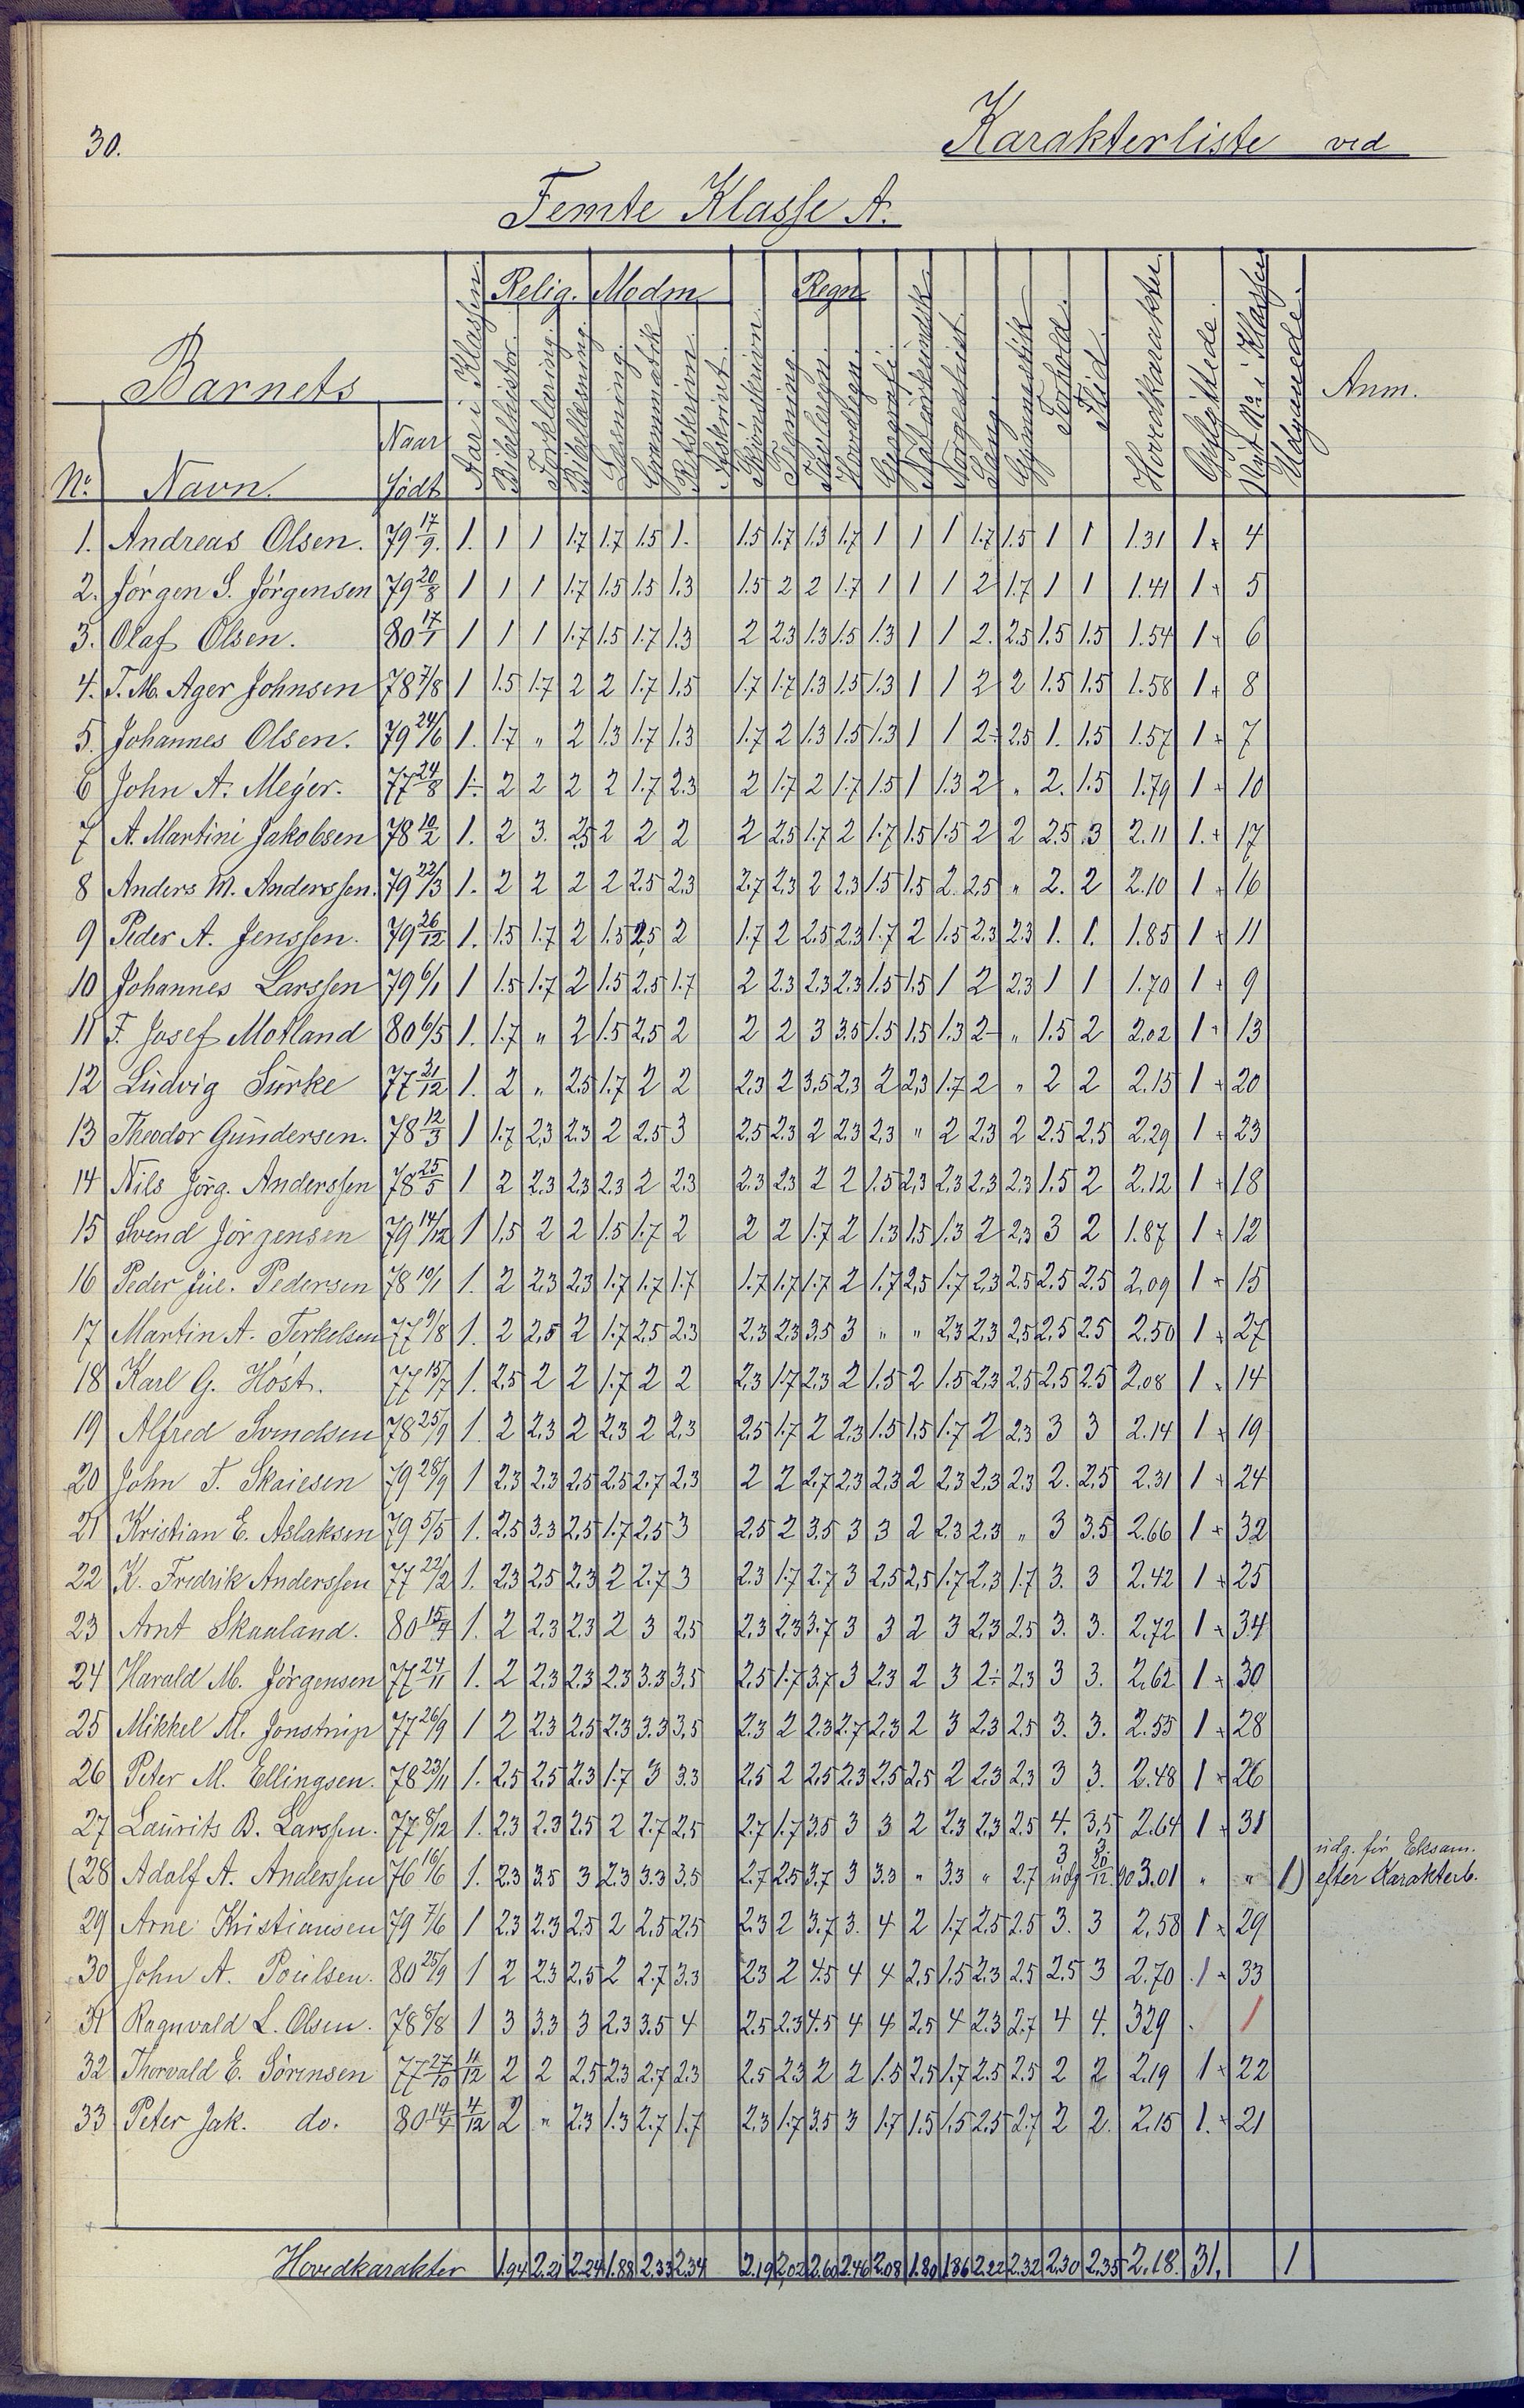 30.
Karakterliste ved
Femte Klasse A.
Barnets
Relig. Modm Regn
No. Navn. Naar født Aar i Klassen. Bibelhistor. Forklaring. Bibellæsning. Læsning. Grammatik Retskrivn. Afskrivt. Skjønskrivn. Tegning. Tavleregn. Hovedregn. Geografi. Naturkundsk. Norgeshist. Sang. Gymnastik Forhold. Flid. Hovedkarakter Opflyttede. Nyt No. i Klassen Udgaaede. Anm.
1. Andreas Olsen. 79 17/9. 1. 1 1 1.7 1.7 1.5 1. 1.5 1.7 1.3 1.7 1 1 1 1.7 1.5 1 1 1.31 1 + 4
2. Jörgen S. Jörgensen 79 20/8 1 1 1 1.7 1.5 1.5 1.3 1.5 2 2 1.7 1 1 1 2 1.7 1 1 1.41 1 + 5
3. Olaf Olsen. 80 17/1 1 1 1 1.7 1.5 1.7 1.3 2 2.3 1.3 1.5 1.3 1 1 2. 2.5 1.5 1.5 1.54 1 + 6
4. T. M. Ager Johnsen 78 7/8 1 1.5 1.7 2 2 1.7 1.5 1.7 1.7 1.3 1.5 1.3 1 1 2 2 1.5 1.5 1.58 1 + 8
5. Johannes Olsen. 79 24/6 1. 1.7 " 2 1.3 1.7 1.3 1.7 2 1.3 1.5 1.3 1 1 2÷ 2.5 1. 1.5 1.57 1 + 7
6 John A. Meyer. 77 24/8 1÷ 2 2 2 2 1.7 2.3 2 1.7 2 1.7 1.5 1 1.3 2 " 2. 1.5 1.79 1 + 10
7 A. Martini Jakobsen 78 10/2 1. 2 3. 2.5 2 2 2 2 2.5 1.7 2 1.7 1.5 1.5 2 2 2.5 3 2.11 1. + 17
8 Anders M. Anderssen. 79 22/3 1. 2 2 2 2 2.5 2.3 2.7 2.3 2 2.3 1.5 1.5 2. 2.5 " 2. 2 2.10 1 + 16
9 Peder A. Jenssen. 79 26/12 1. 1.5 1.7 2 1.5 2.5 2 1.7 2 2.5 2.3 1.7 2 1.5 2.3 2.3 1. 1. 1.85 1 + 11
10 Johannes Larssen 79 6/1 1 1.5 1.7 2 1.5 2.5 1.7 2 2.3 2.3 2.3 1.5 1.5 1 2 2.3 1 1 1.70 1 + 9
11 F. Josef Motland 80 6/5 1. 1.7 " 2 1.5 2.5 2 2 2 3 3.5 1.5 1.5 1.3 2- " 1.5 2 2.02 1 + 13
12 Ludvig Surke 77 21/12 1. 2 " 2.5 1.7 2 2 2.3 2 3.5 2.3 2 2.3 1.7 2 " 2 2 2.15 1 + 20
13 Theodor Gundersen. 78 12/3 1 1.7 2.3 2.3 2 2.5 3 2.5 2.3 2 2.3 2.3 " 2 2.3 2 2.5 2.5 2.29 1 + 23
14 Nils Jörg. Anderssen 78 25/5 1 2 2.3 2.3 2.3 2 2.3 2.3 2.3 2 2 1.5 2.3 2.3 2.3 2.3 1.5 2 2.12 1 + 18
15 Svend Jörgensen 79 14/12 1 1.5 2 2 1.5 1.7 2 2 2 1.7 2 1.3 1.5 1.3 2 2.3 3 2 1.87 1 + 12
16 Peder Jul. Pedersen 78 10/1 1. 2 2.3 2.3 1.7 1.7 1.7 1.7 1.7 1.7 2 1.7 2.5 1.7 2.3 2.5 2.5 2.5 2.09 1 + 15
17 Martin A. Terkelsen 77 9/8 1. 2 2.5 2 1.7 2.5 2.3 2.3 2.3 3.5 3 " " 2.3 2.3 2.5 2.5 2.5 2.50 1 + 27
18 Karl G. Höst. 77 15/7 1. 2.5 2 2 1.7 2 2 2.3 1.7 2.3 2 1.5 2 1.5 2.3 2.5 2.5 2.5 2.08 1 + 14
19 Alfred Svendsen 78 25/9 1. 2 2.3 2 2.3 2 2.3 2.5 1.7 2 2.3 1.5 1.5 1.7 2 2.3 3 3 2.14 1 + 19
20 John T. Skaiesen 79 28/9 1 2.3 2.3 2.5 2.5 2.7 2.3 2 2 2.7 2.3 2.3 2 2.3 2.3 2.3 2. 2.5 2.31 1 + 24
21 Kristian E. Aslaksen 79 5/5 1. 2.5 3.3 2.5 1.7 2.5 3 2.5 2 3.5 3 3 2 2.3 2.3 " 3 3.5 2.66 1 + 32
22 K. Fredrik Anderssen 77 22/2 1. 2.3 2.5 2.3 2 2.7 3 2.3 1.7 2.7 3 2.5 2.5 1.7 2.3 1.7 3. 3 2.42 1 + 25
23 Arnt Skaaland. 80 15/4 1. 2 2.3 2.3 2 3 2.5 2.3 2.3 3.7 3 3 2 3 2.3 2.5 3. 3. 2.72 1 + 34
24 Harald M. Jörgensen 77 24/11 1. 2 2.3 2.3 2.3 3.3 3.5 2.5 1.7 3.7 3 2.3 2 3 2÷ 2.3 3 3. 2.62 1 + 30
25 Mikkel M. Jonstrup 77 26/9 1 2 2.3 2.5 2.3 3.3 3.5 2.3 2 2.3 2.7 2.3 2 3 2.3 2.5 3. 3. 2.55 1 + 28
26 Peter M. Ellingsen. 78 23/11 1. 2.5 2.5 2.3 1.7 3 3.3 2.5 2 2.5 2.3 2.5 2.5 2 2.3 2.3 3 3. 2.48 1 + 26
27 Laurits B. Larssen. 77 8/12 1. 2.3 2.3 2.5 2 2.7 2.5 2.7 1.7 3.5 3 3 2 2.3 2.3 2.5 4. 3.5 2.64 1 + 31
udg. för Eksam.
(28 Adolf A. Anderssen 76 16/6 1. 2.3 3.5 3 2.3 3.3 3.5 2.7 2.5 3.7 3 3.3 " 3.3 " 2.7 3 udg 20/12. 90 3.01 " " 1) efter Karakterb.
29 Arne Kristiansen 79 7/6 1 2.3 2.3 2.5 2 2.5 2.5 2.3 2 3.7 3. 4 2 1.7 2.5 2.5 3. 3 2.58 1 + 29
30 John A. Poulsen. 80 25/9 1 2 2.3 2.5 2 2.7 3.3 2.3 2 4.5 4 4 2.5 1.5 2.3 2.5 2.5 3 2.70 1 + 33
31 Ragnvald L. Olsen. 78 8/8 1 3 3.3 3 2.3 3.5 4 2.5 2.3 4.5 4 4 2.5 4 2.3 2.7 4 4. 329 . 1
32 Thorvald E. Sörensen 77 27/10 11/12 2 2 2.5 2.3 2.7 2.3 2.5 2.3 2 2 1.5 2.5 1.7 2.5 2.5 2 2 2.19 1 + 22
33 Peter Jak. do. 80 14/4 4/12 2 " 2.3 1.3 2.7 1.7 2.3 1.7 3.5 3 1.7 1.5 1.5 2.5 2.7 2 2. 2.15 1. + 21
Hovedkarakter 1.94 2.21 2.24 1.88 2.33 2.34 2.19 2.02 2.60 2.46 2.08 1.80 1.86 2.22 2.32 2.30 2.35 2.18. 31, 1